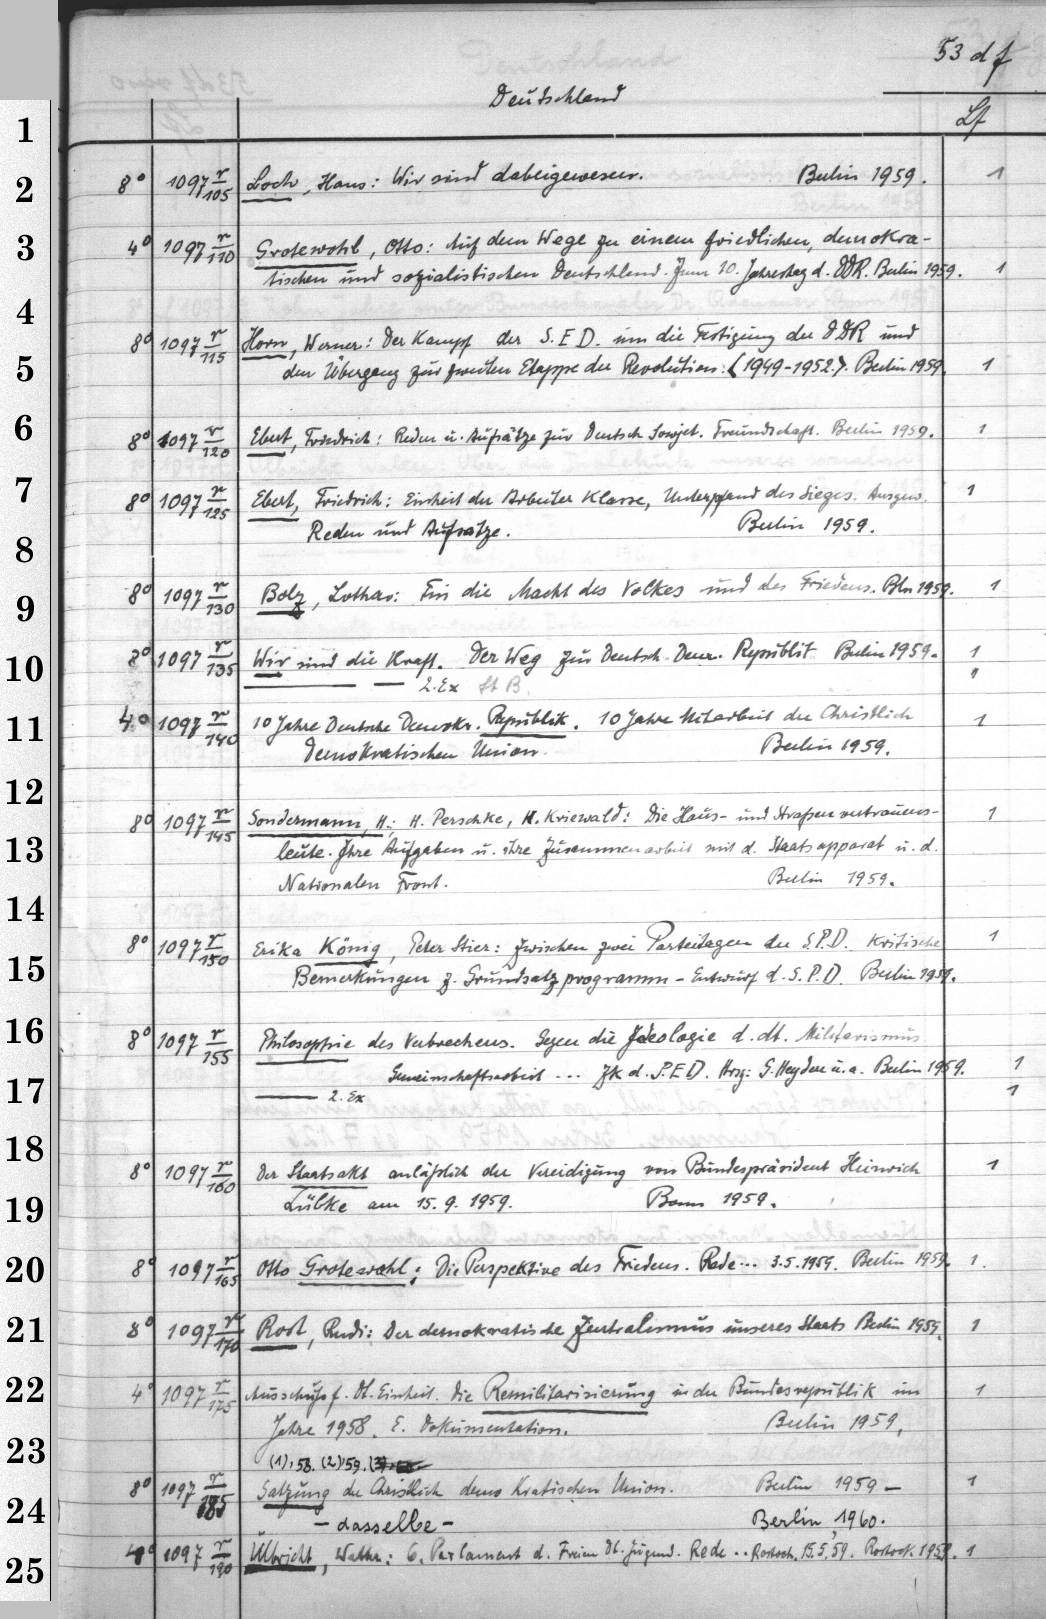 53 df
Deutschland
Lf
1
2
8° 1097 r/105 Loch, Hans: Wir sind dabeigewesen. Berlin 1959. 1
3
4° 1097 r/110 Grotewohl, Otto: Auf dem Wege zu einem friedlichen, demokra-
tischen und sozialistischen Deutschland. Zum 10. Jahrestag d. DDR. Berlin 1959. 1
4
8° 1097 r/115 Horn, Werner: Der Kampf der S.E.D. um die Festigung der DDR und
5
den Übergang zur zweiten Etappe der Revolution. (1949-1952). Berlin 1959. 1
6
8° 1097 r/120 Ebert, Friedrich: Reden u. Aufsätze zur Deutsch Sowjet. Freundschaft. Berlin 1959. 1
7
8° 1097 r/125 Ebert, Friedrich: Einheit der Arbeiter Klasse, Unterpfand des Sieges. Ausgew. 1
Reden und Aufsätze. Berlin 1959.
8
9
8° 1097 r/130 Bolz, Lothar: Für die Macht des Volkes und des Friedens. Bln 1959. 1
10
8° 1097 r/135 Wir sind die Kraft. Der Weg zur Deutsch. Dem. Republik Berlin 1959. 1
2. Ex St B. 1
11
4° 1097 r/140 10 Jahre Deutsche Demokr. Republik. 10 Jahre Mitarbeit der Christlich 1
Demokratischen Union. Berlin 1959.
12
8° 1097 r/145 Sondermann, H.; H. Perschke, H. Kriewald: Die Haus- und Straßenvertrauens- 1
13
leute. Ihre Aufgaben u. ihre Zusammenarbeit mit d. Staatsapparat u. d.
Nationalen Front. Berlin 1959.
14
8° 1097 r/150 Erika König, Peter Stier: Zwischen zwei Parteitagen der S.P.D. Kritische 1
15
Bemerkungen z. Grundsatzprogramm-Entwurf d. S.P.D. Berlin 1959.
16
8° 1097 r/155 Philosophie des Verbrechens. Gegen die Ideologie d. dt. Militarismus
Gemeinschaftsarbeit ... ZK d. S.E.D. Hrsg: G. Heyden u. a. Berlin 1959. 1
17
2. Ex 1
18
8° 1097 r/160 Der Staatsakt anläßlich der Vereidigung von Bundespräsident Heinrich 1
19
Lübke am 15. 9. 1959. Bonn 1959.
20
8° 1097 r/165 Otto Grotewohl: Die Perspektive des Friedens. Rede ... 3.5.1959. Berlin 1959. 1.
21
8° 1097 r/170 Rost, Rudi: Der demokratische Zentralismus unseres Staats Berlin 1959. 1
22
4° 1097 r/175 Ausschuß f. Dt. Einheit. Die Remilitarisierung in der Bundesrepublik im 1
Jahre 1958. E. Dokumentation. Berlin 1959.
23
(1), 58. (2) 59. (3)
8° 1097 r/185 Satzung der Christlich demo Kratischen Union. Berlin 1959 - 1
24
- dasselbe - Berlin, 1960.
25
4° 1097 r/190 Ulbricht, Walter: 6. Parlament d. Freien Dt. Jugend. Rede .. Rostock. 15.5.59. Rostock 1959. 1